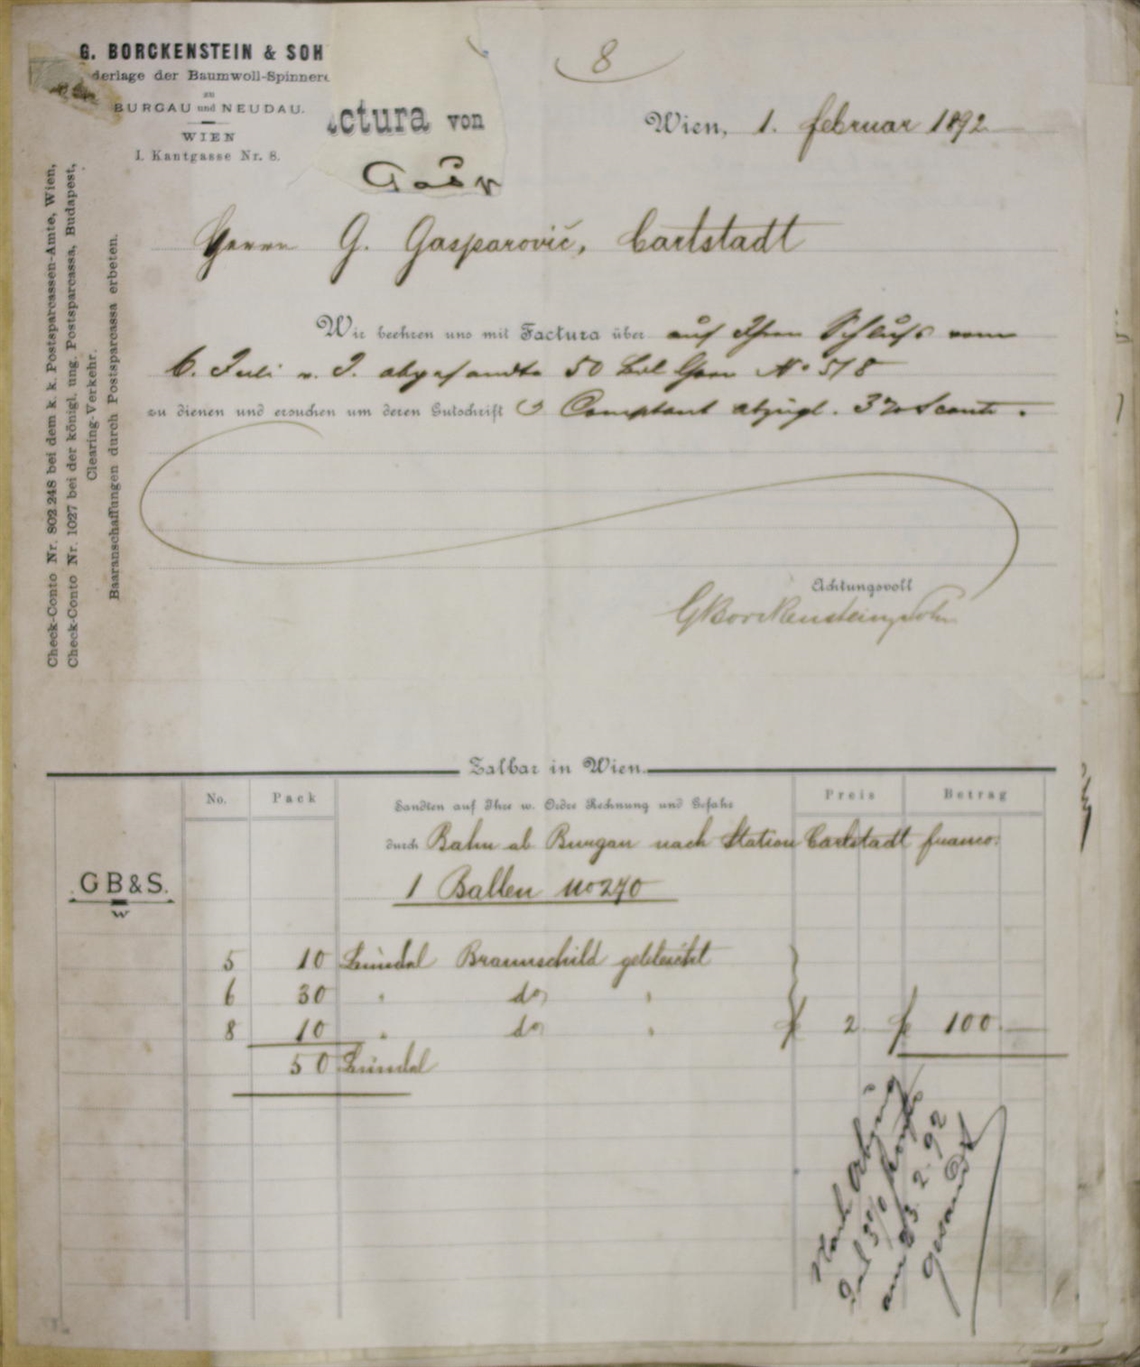 8
G. BORCKENSTEIN & SOH
derlage der Baumwoll-Spinnere
zu
BURGAU und NEUDAU.
WIEN
I. Kantgasse Nr. 8.
ctura von
Wien, 1. februar 1892
Herrn G. Gasparovič, Carlstadt
Check-Conto Nr. 802.248 bei dem k. k. Postsparcassen-Amte, Wien,
Check-Conto Nr. 1027 bei der königl. ung. Postsparcassa, Budapest,
Clearing-Verkehr.
Baaranschaffungen durch Postsparcassa erbeten.
Wir beehren uns mit Factura über auf Ihren Schluß vom
6. Juli v. J. abgesandte 50 Garn No 518
zu dienen und ersuchen um deren Gutschrift Comptant abzügl. 3% Sconto.
Achtungsvoll
GBorckenstein Sohn
Zalbar in Wien.
No. Pack Sandten auf Ihre w. Ordre Rechnung und Gefahr Preis Betrag
durch Bahn ab Burgau nach Station Carlstadt franco.
GB&S.
W
1 Ballen No 270
5 10 Bündel Braunschild gebleicht
6 30 " do "
8 10 " do " f 2 f 100.—
50 Bündel
Nach Abzug
3%
am 3. 2. 92
gesandt